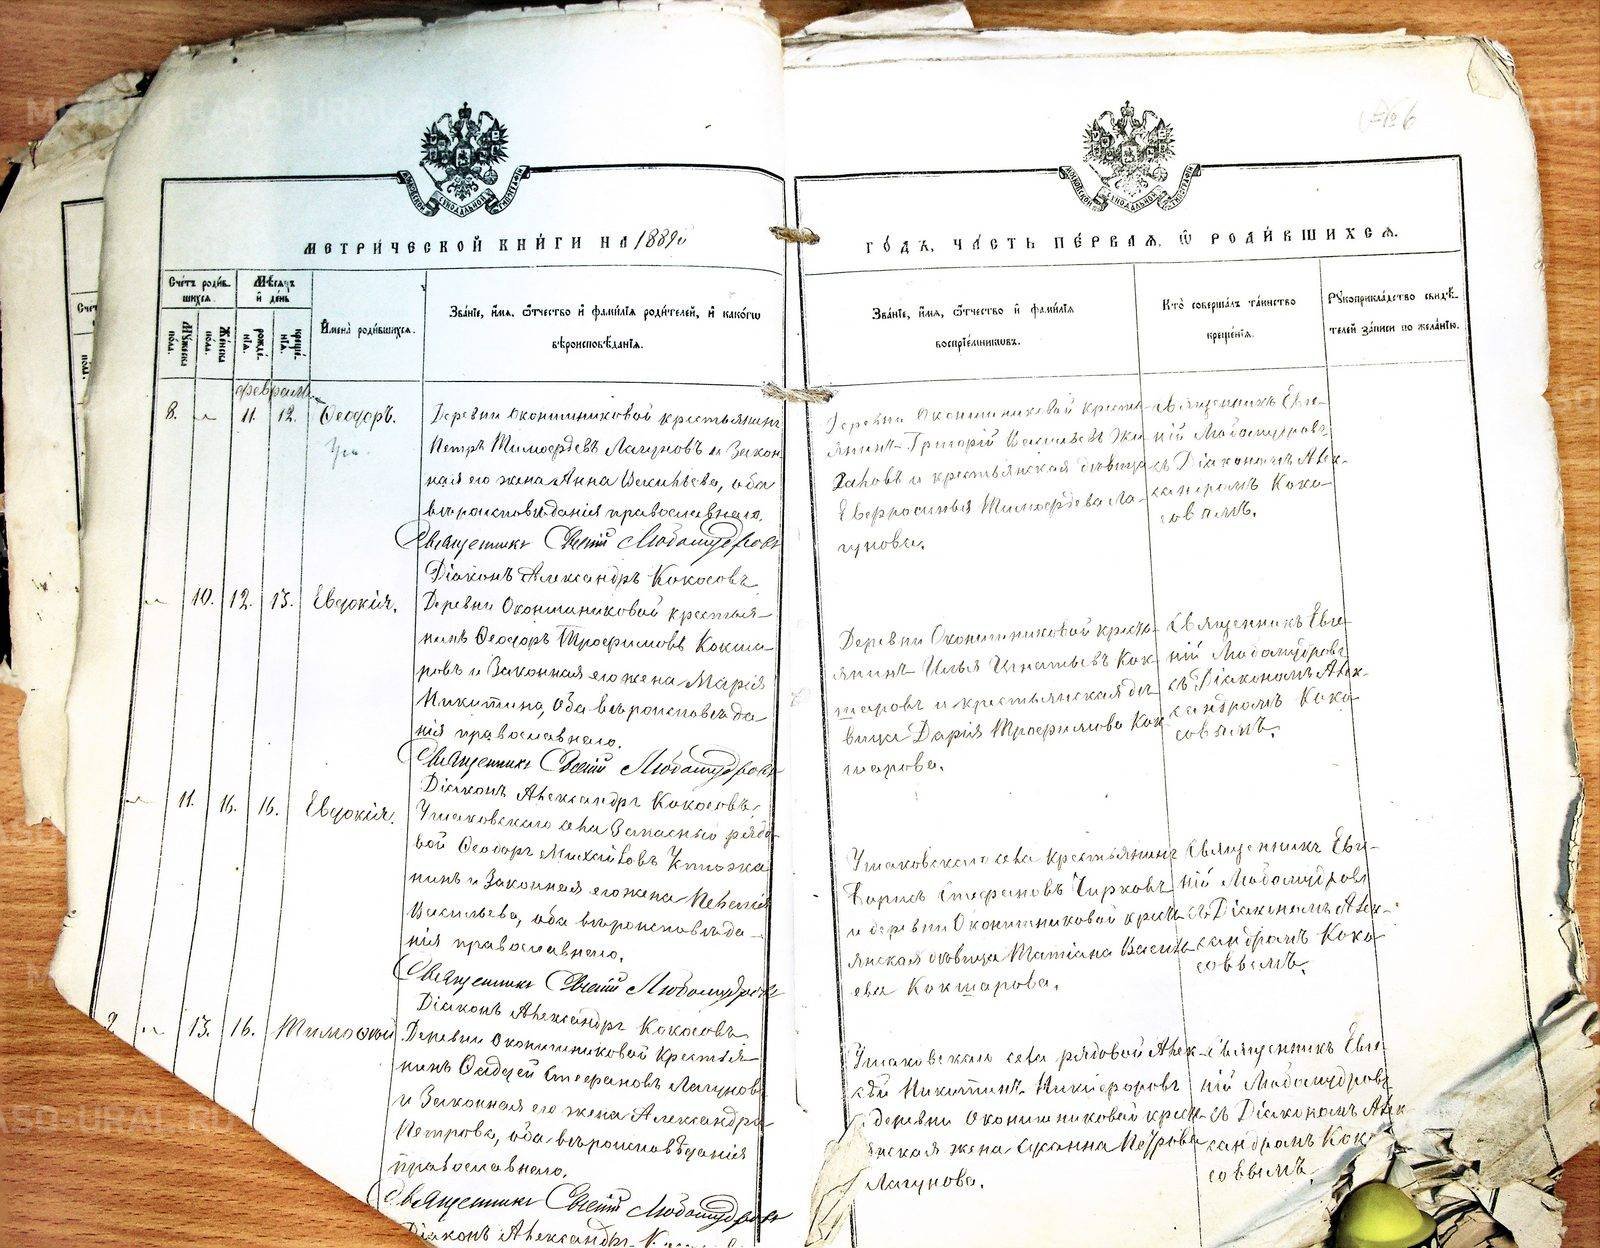 МЕТРИЧЕСКОЙ КНИГИ НА 1889й
ГОДЪ, ЧАСТЬ ПЕРВАЯ, Ѿ РОДИВШИХСЯ.
Счетъ родив-
шихся.
Мѣсяцъ
и день
Мужеска
пола.
Женска
пола.
рожде-
нія.
креще-
нія.
Имена родившихся.
Званіе, имя, ѿтчество и фамилія родителей, и какогѡ
вѣроисповѣданія.
Званіе, имя, ѿтчество и фамилія
воспріемникѡвъ.
Кто совершалъ таинство
крещенія.
Рꙋкоприкладство свидѣ-
телей записи по желанію.
февраль
8. 11. 12. Ѳеодоръ.
Ум.
Деревни Оконишниковой крестьянинъ
Петръ Тимофѣевъ Лагуновъ и закон
ная его жена Анна Васильева, оба
вѣроисповѣданія православнаго.
Священникъ Евгеній Любомудровъ
Діаконъ Александръ Кокосовъ
Деревни Оконишниковой кресть-
янинъ Григорій Васильевъ
и крестьянская дѣвица
Евфросинья Тимофѣева Ла-
гунова.
Священникъ Евге-
ній Любомудровъ
съ Діакономъ Алек-
сандромъ Коко-
совымъ.
10. 12. 13. Евдокія.
Деревни Оконишниковой крестья-
нинъ Ѳеодоръ Трофимовъ Кокша-
ровъ и законная его жена Марія
Никитина, оба вѣроисповѣда-
нія православнаго.
Священникъ Евгеній Любомудровъ
Діаконъ Александръ Кокосовъ
Деревни Оконишниковой кресть-
янинъ Илья Игнатьевъ Кок-
шаровъ и крестьянская дѣ-
вица Дарія Трофимова Кок-
шарова.
Священникъ Евге-
ній Любомудровъ
съ Діакономъ Алек-
сандромъ Коко-
совымъ.
11. 16. 16. Евдокія.
Ушаковскаго села запасный рядо-
вой Ѳеодоръ Михайловъ
и законная его жена Пелагія
Васильева, оба вѣроисповѣда-
нія православнаго.
Священникъ Евгеній Любомудровъ
Діаконъ Александръ Кокосовъ
Ушаковскаго села крестьянинъ
Борисъ Стефановъ Чирковъ
и деревни Оконишниковой кресть-
янская дѣвица Татіана Василь-
ева Кокшарова.
Священникъ Евге-
ній Любомудровъ
съ Діакономъ Алек-
сандромъ Коко-
совымъ.
9. 13. 16. Тимоѳей
Деревни Оконишниковой крестья-
нинъ Ѳаддей Стефановъ Лагуновъ
и законная его жена Александра
Петрова, оба вѣроисповѣданія
православнаго.
Священникъ Евгеній Любомудровъ
Діаконъ Александръ
Ушаковскаго села рядовой Алек-
сѣй Никитинъ Никифоровъ
и деревни Оконишниковой кресть-
янская жена Сусанна Петрова
Лагунова.
Священникъ Евге-
ній Любомудровъ
съ Діакономъ Алек-
сандромъ Коко-
совымъ.